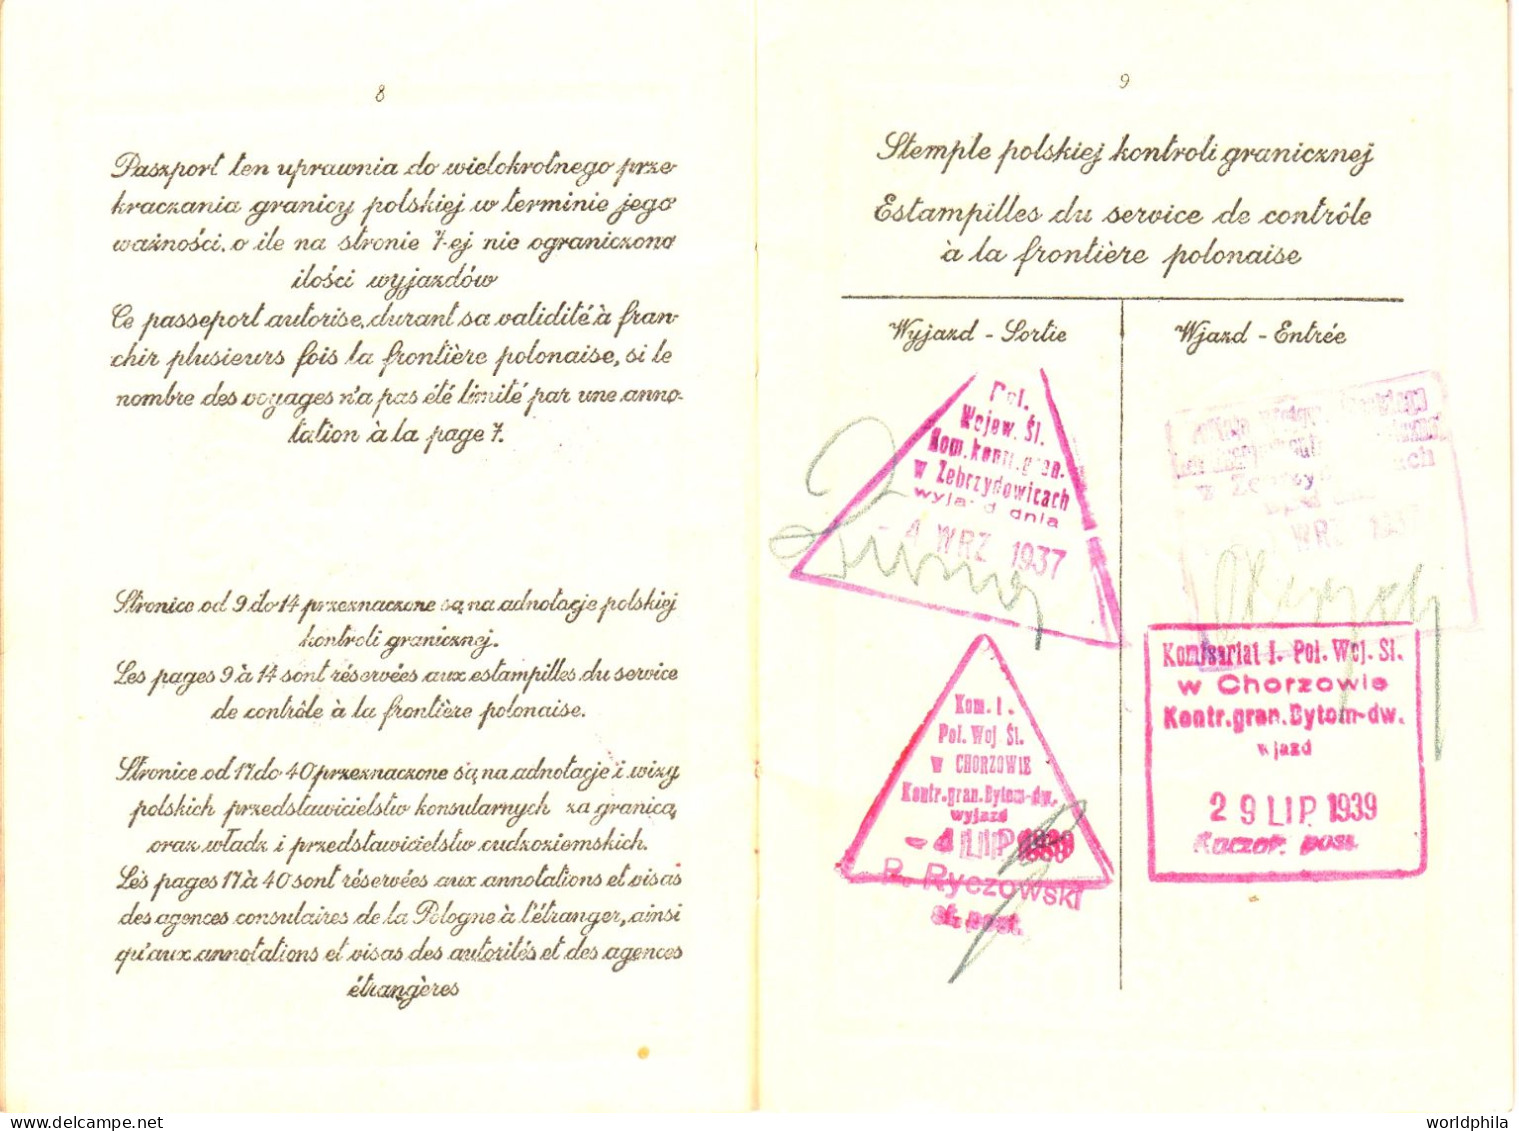 8
Paszport ten uprawnia do wielokrotnego prze-
kraczania granicy polskiej w terminie jego
ważności, o ile na stronie 7-ej nie ograniczono
ilości wyjazdów
Ce passeport autorise, durant sa validité à fran-
chir plusieurs fois la frontière polonaise, si le
nombre des voyages n'a pas été limité par une anno-
tation à la page 7.
Stronice od 9 do 14 przeznaczone są na adnotacje polskiej
kontroli granicznej.
Les pages 9 à 14 sont réservées aux estampilles du service
de contrôle à la frontière polonaise.
Stronice od 17 do 40 przeznaczone są na adnotacje i wizy
polskich przedstawicielstw konsularnych za granicą,
oraz władz i przedstawicielstw cudzoziemskich.
Les pages 17 à 40 sont réservées aux annotations et visas
des agences consulaires de la Pologne à l'étranger, ainsi
qu'aux annotations et visas des autorités et des agences
étrangères
9
Stemple polskiej kontroli granicznej
Estampilles du service de contrôle
à la frontière polonaise
Wyjazd - Sortie
Pol.
Wojew. Śl.
Kom. kontr. gran.
w Zebrzydowicach
wyjazd dnia
- 4 WRZ 1937
Kom. I.
Pol. Woj Śl.
w CHORZOWIE
Kontr. gran. Bytom-dw.
wyjazd
- 4 LIP 1939
R. Ryczowski
st. post.
Wjazd - Entrée
WRZ 193
Komisariat I. Pol. Woj. Sl.
w Chorzowie
Kontr. gran. Bytom-dw.
wjazd
29 LIP. 1939
post.
worldphila